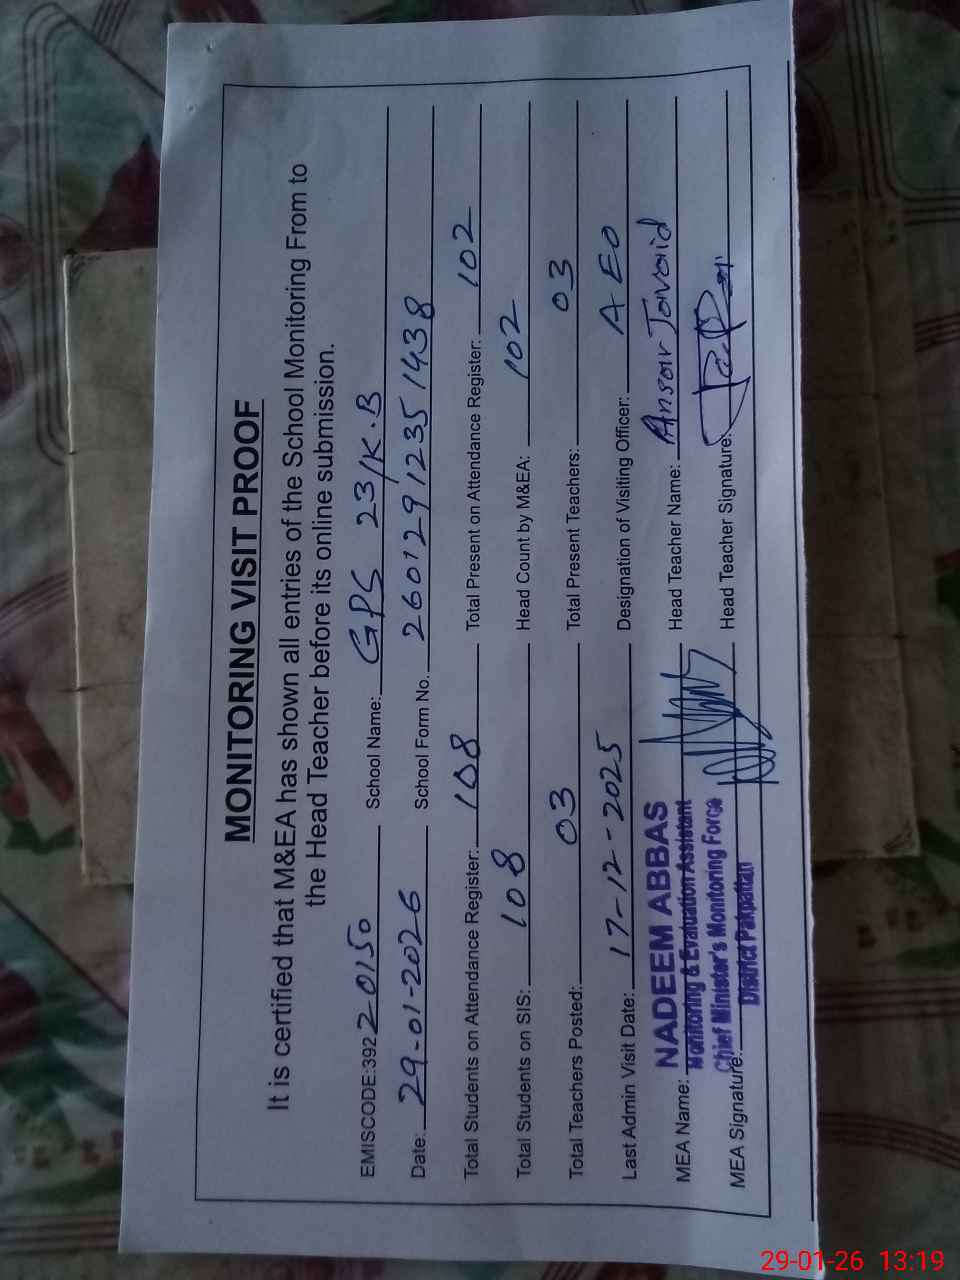 MONITORING VISIT PROOF
It is certified that M&EA has shown all entries of the School Monitoring From to
the Head Teacher before its online submission.
EMISCODE:392 20150 School Name: GPS 23/K.B
Date: 29-01-2026 School Form No. 260129 1235 1438
Total Students on Attendance Register: 108 Total Present on Attendance Register: 102
Total Students on SIS: 108 Head Count by M&EA: 102
Total Teachers Posted: 03 Total Present Teachers: 03
Last Admin Visit Date: 17-12-2025 Designation of Visiting Officer: A EO
MEA Name: NADEEM ABBAS Head Teacher Name: Ansar Javaid
Monitoring & Evaluation Assistant
Chief Minister's Monitoring Force
MEA Signature: District Pakpattan Head Teacher Signature:
29-01-26 13:19